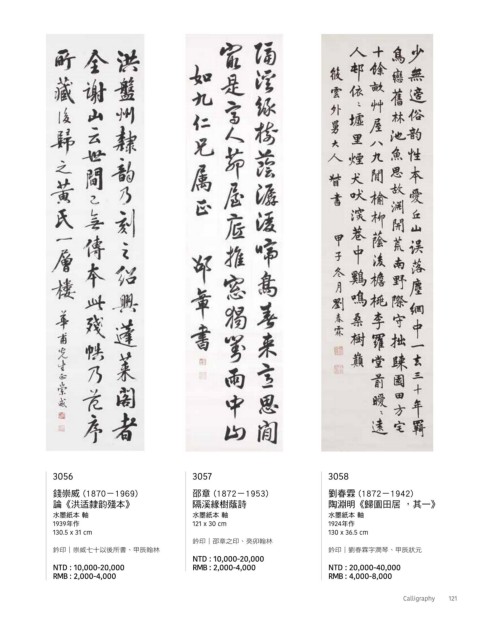 洪盤州隸韵乃刻之紹興蓬萊閣者
全謝山云世間已無傳本此殘帙乃范序
所藏後歸之黃氏一層樓 華甫先生正 崇威
隔溪緣樹蔭潺湲啼鳥春來言思閒
最是高人茆屋底推窓獨看雨中山
如九仁兄属正 邵章書
少無適俗韵性本愛丘山误落塵網中一去三十年羈
鳥戀舊林池魚思故渊開荒南野際守拙歸園田方宅
十餘畝艸屋八九間榆柳蔭後檐桃李羅堂前曖〻遠
人邨依〻墟里煙犬吠深巷中鷄鳴桑樹巔
筱雲外舅大人 督書 甲子冬月劉春霖
3056
錢崇威(1870-1969)
論《洪适隸韵殘本》
水墨紙本 軸
1939年作
130.5 x 31 cm
鈐印|崇威七十以後所書、甲辰翰林
NTD : 10,000-20,000
RMB : 2,000-4,000
3057
邵章(1872-1953)
隔溪緣樹蔭詩
水墨紙本 軸
121 x 30 cm
鈐印|邵章之印、癸卯翰林
NTD : 10,000-20,000
RMB : 2,000-4,000
3058
劉春霖(1872-1942)
陶淵明《歸園田居,其一》
水墨紙本 軸
1924年作
130 x 36.5 cm
鈐印|劉春霖字潤琴、甲辰狀元
NTD : 20,000-40,000
RMB : 4,000-8,000
Calligraphy 121